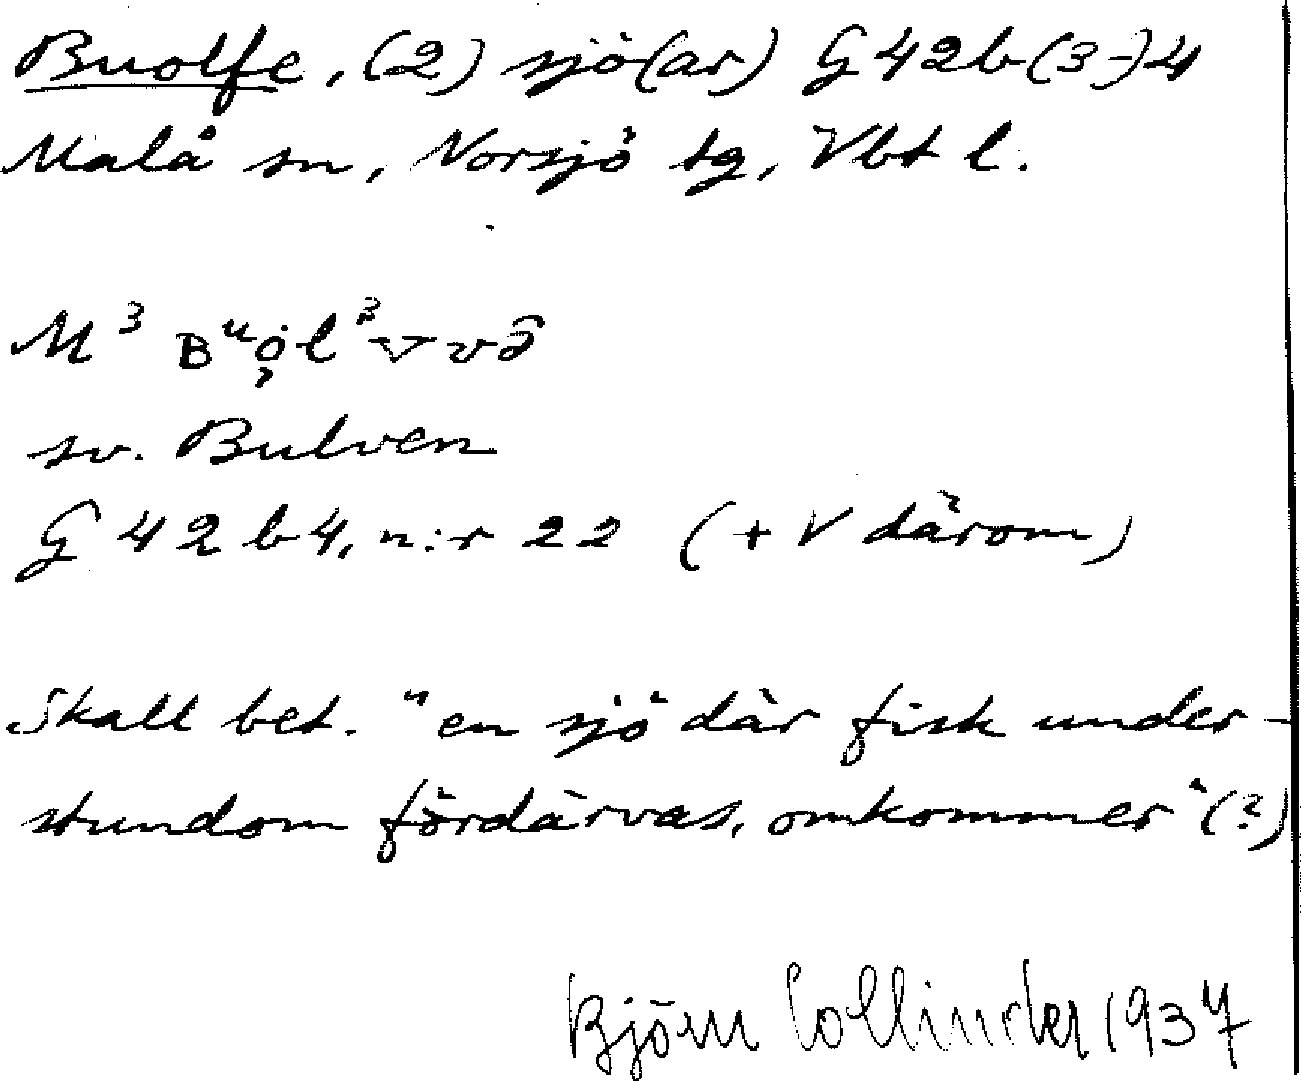 Buolfe, (2) sjö(ar) G42b(3-)4
Malå sn, Norsjö tg, Vbt l.
M³
sv. Bulven
G 42 b 4, n:r 22 (+ V därom)
Skall bet. "en sjö där fisk under-
stundom fördärvas, omkommer" (?)
Björn Collinder 1937